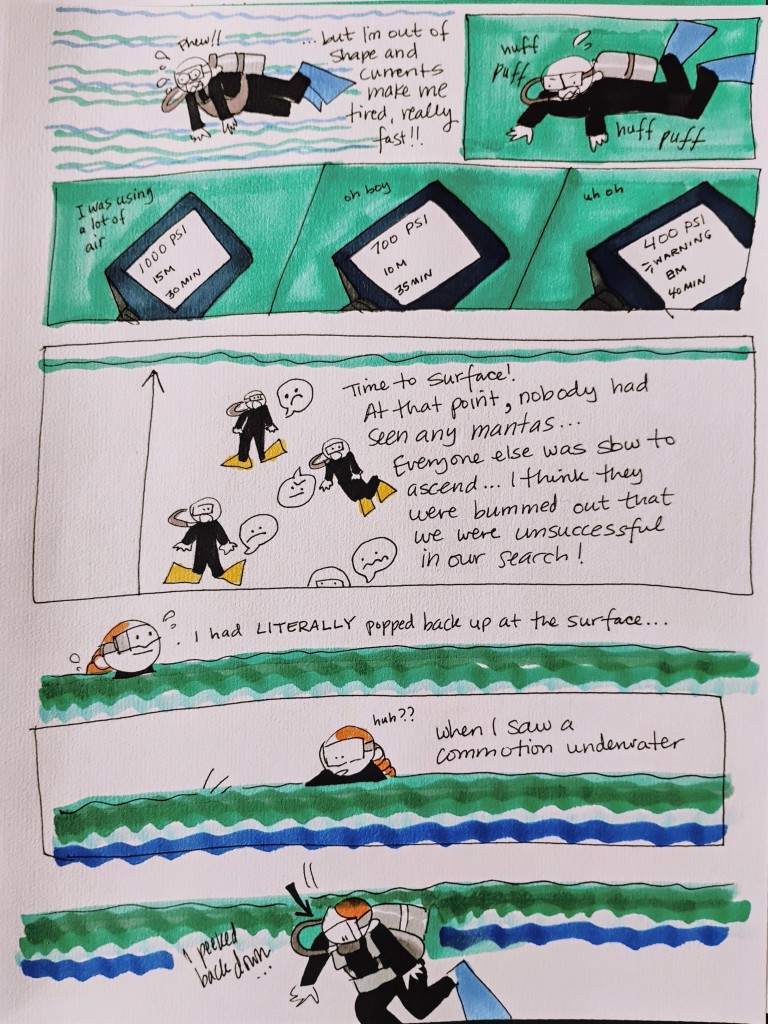 Phew!!
...but I'm out of
shape and
currents
make me
tired, really
fast!!
huff
puff
huff puff
I was using
a lot of
air
1000 PSI
15M
30 MIN
oh boy
700 PSI
10M
35MIN
uh oh
400 PSI
WARNING
8M
40 MIN
Time to surface!
At that point, nobody had
seen any mantas...
Everyone else was slow to
ascend... I think they
were bummed out that
we were unsuccessful
in our search!
I had LITERALLY popped back up at the surface...
huh??
when I saw a
commotion underwater
I peeked
back down
...